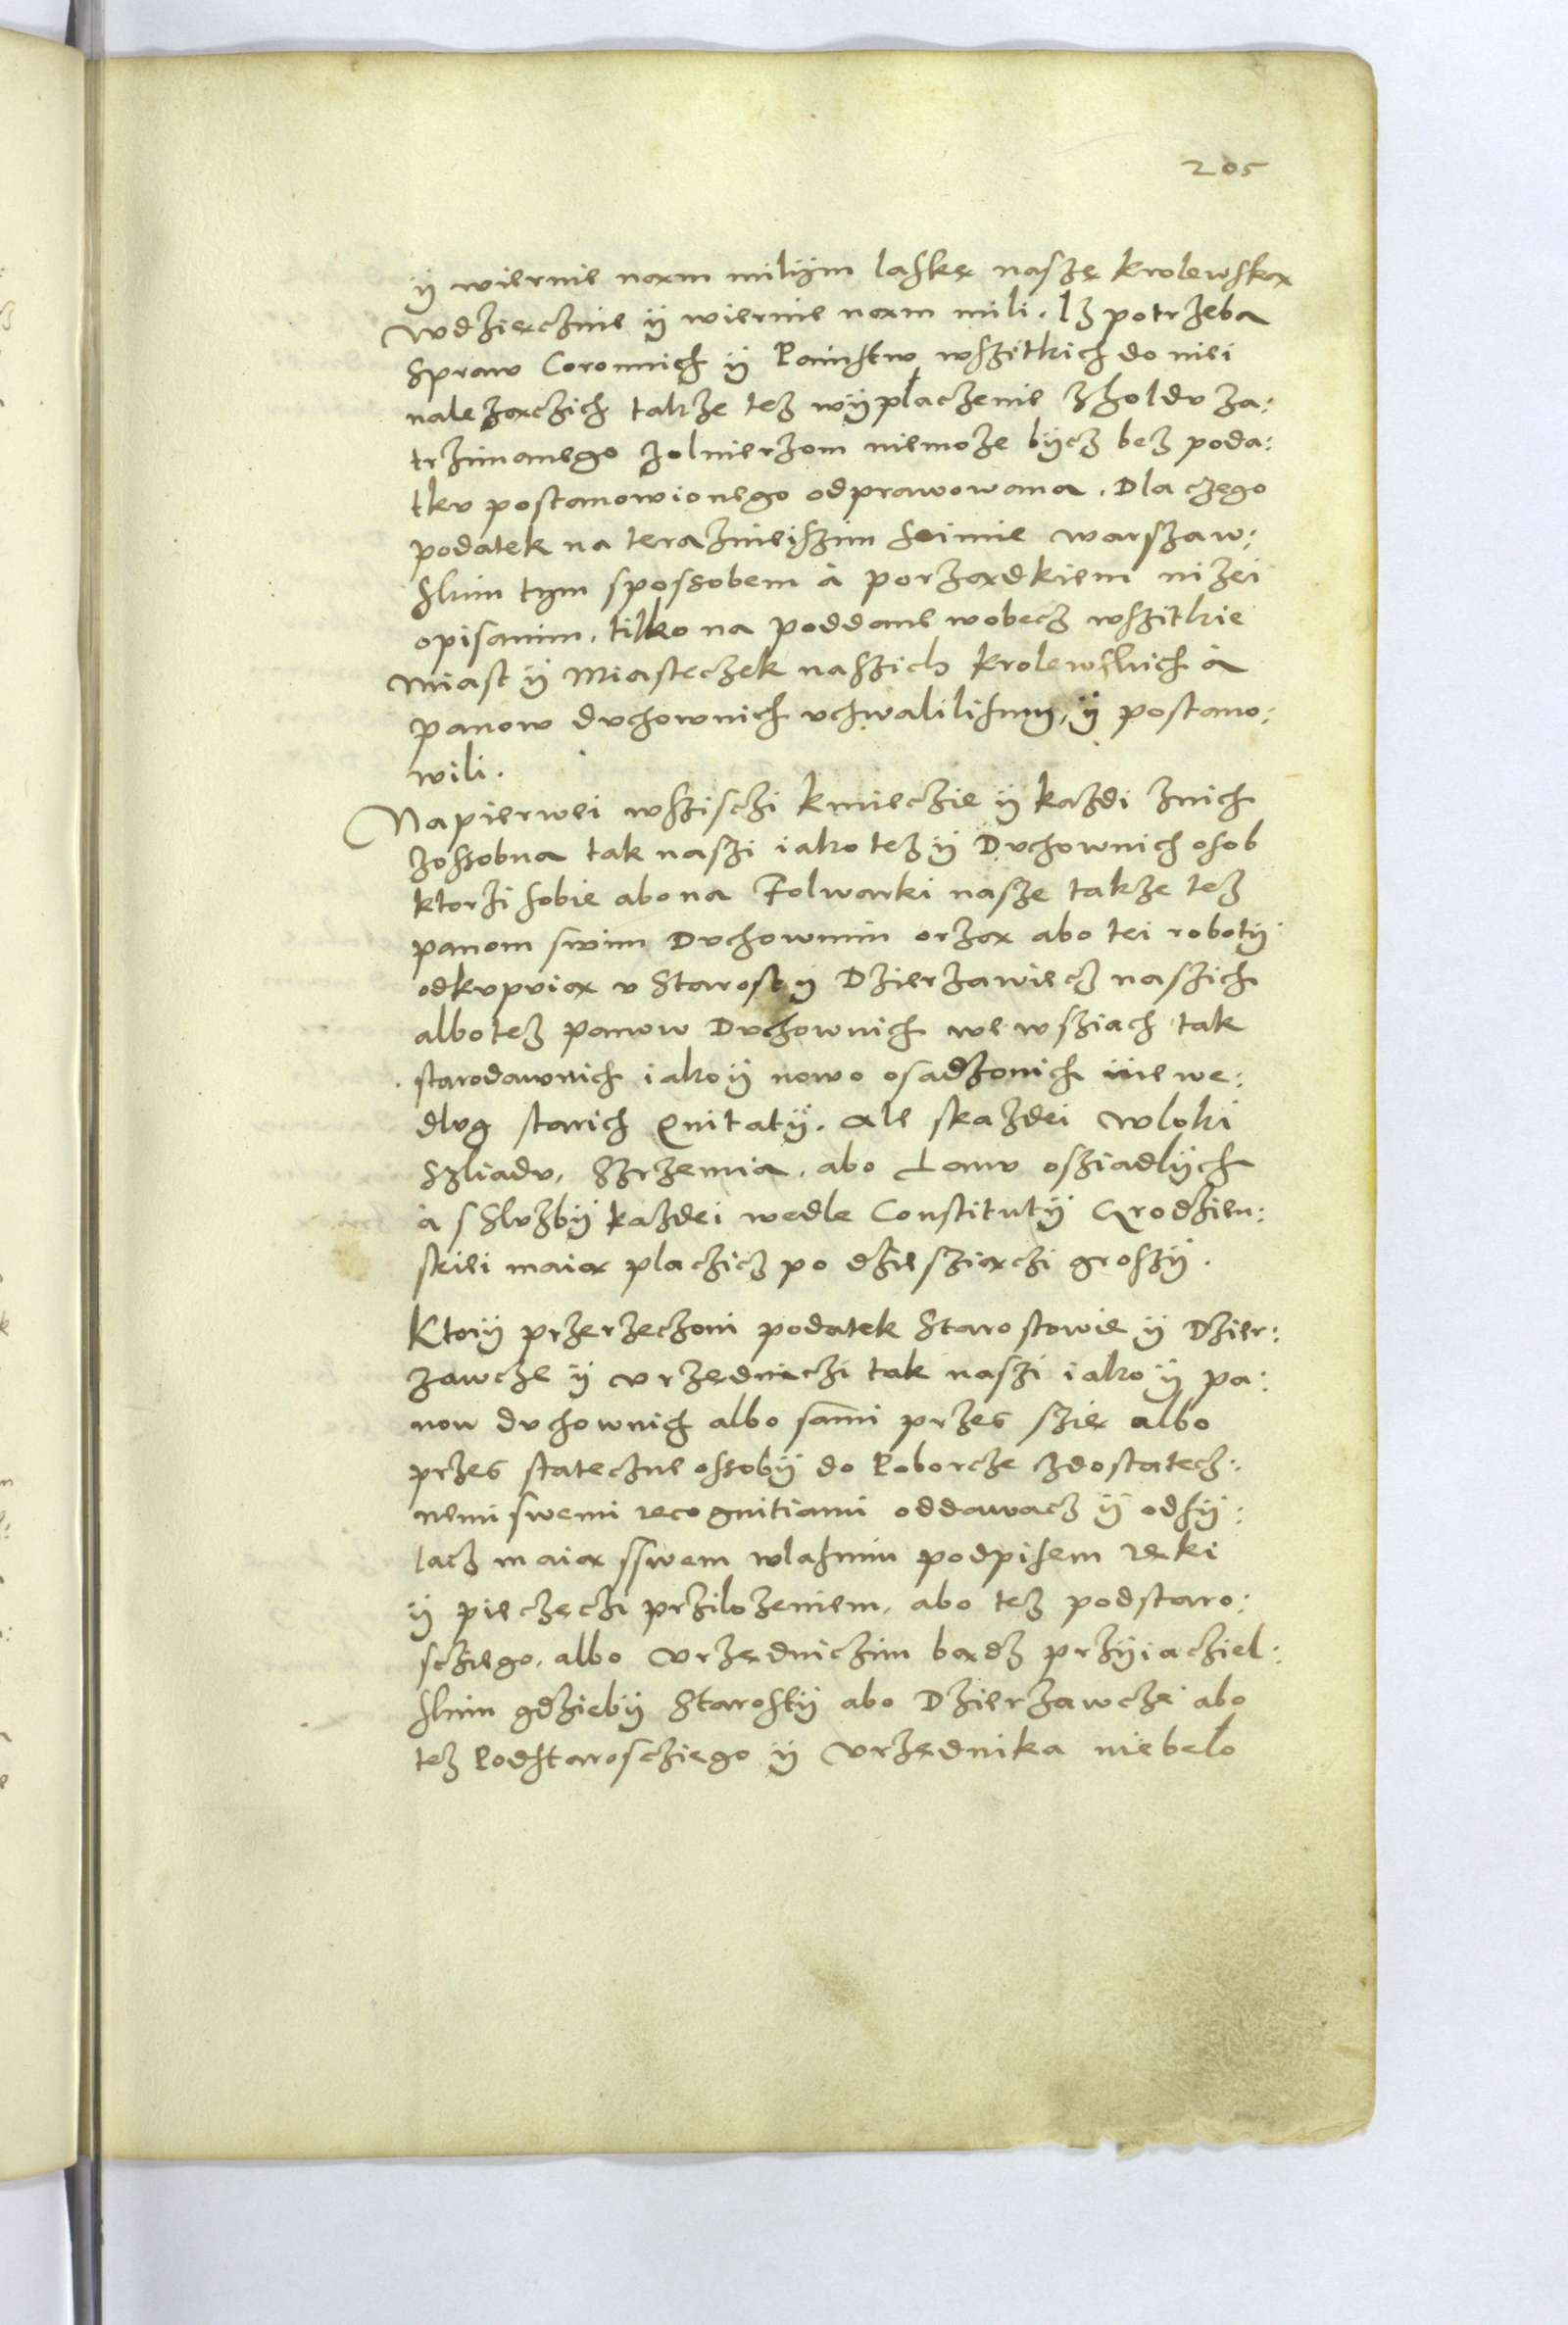 205
ÿ wiernie nam milÿm laskę naszę krolewską
Wdzięcznie ÿ wiernie nam mili. Iz potrzeba
Spraw Coronnich ÿ Panstw wszitkich do niei
należączich takze tez wÿpłaczenie zholdu za:
trzimanego zolnierzom niemoze bÿcz bez poda:
tku postanowionego odprawowana. Dla czego
podatek na teraznieiszim seimie warszaw:
skim tym spossobem à porządkiem nizei
opisanim. tilko na poddane wobecz wszitkie
Miast ÿ Miasteczek naszich krolewskich à
panow duchownich uchwalilismy, ÿ postano:
wili.
Napierwei wszisczi kmieczie ÿ kazdi znich
zossobna tak naszi iako tez ÿ Duchownich osob
ktorzi sobie abo na Folwarki nasze takze tez
panom swim Duchownim orzą abo tei robotÿ
odkupuią u Starost ÿ Dzierzawiecz naszich
albo tez panow Duchownich we wsziach tak
starodawnich iako ÿ nowo osadzonich nie we:
dlug starich Quitatÿ. ale skazdei wloki
Szliadu, Szrzemia, abo Lanu osziadlÿch
à sSluzbÿ kazdei wedle Constitutÿ Grodzien:
skiei maią placzicz po dziesziączi groszÿ.
Ktoiÿ przerzeczoni podatek Starostowie ÿ Dzier:
zawcze ÿ urzędniczi tak naszi iako ÿ pa:
now duchownich albo sami przes szię albo
przes stateczne ossobÿ do Poborcze zdostatecz:
nemi swemi recognitiami oddawacz ÿ odsÿ:
lacz maią sswem wlasnim podpisem ręki
ÿ pieczęczi przilozeniem, abo tez podstaro:
scziego, albo Urzędniczim bądz przÿiacziel:
skim gdziebÿ Starostÿ abo Dzierzawcze abo
tez Podstaroscziego ÿ Urzędnika niebeło